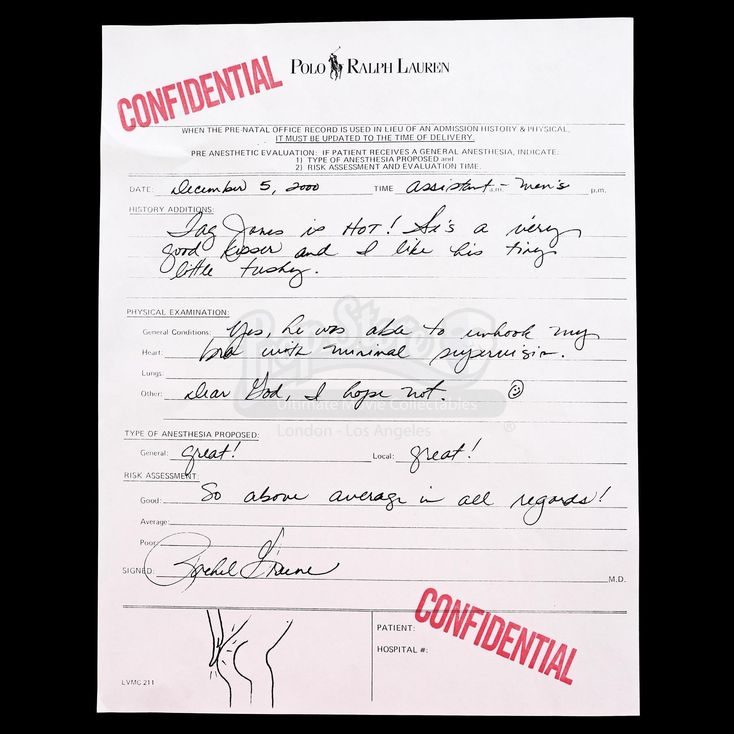 CONFIDENTIAL
POLO RALPH LAUREN
WHEN THE PRE-NATAL OFFICE RECORD IS USED IN LIEU OF AN ADMISSION HISTORY & PHYSICAL,
IT MUST BE UPDATED TO THE TIME OF DELIVERY.
PRE ANESTHETIC EVALUATION: IF PATIENT RECEIVES A GENERAL ANESTHESIA, INDICATE:
1) TYPE OF ANESTHESIA PROPOSED and
2) RISK ASSESSMENT AND EVALUATION TIME.
DATE: December 5, 2000 TIME assistant - men's a.m. p.m.
HISTORY ADDITIONS:
Tag Jones is HOT! He's a very
good kisser and I like his tiny
little tushy.
PHYSICAL EXAMINATION:
General Conditions: Yes, he was able to unhook my
Heart: bra with minimal supervision.
Lungs:
Other: Dear God, I hope not.
PropStore
Ultimate Movie Collectables
London - Los Angeles ®
TYPE OF ANESTHESIA PROPOSED:
General: great! Local: great!
RISK ASSESSMENT:
Good: So above average in all regards!
Average:
Poor:
SIGNED: Rachel Greene M.D.
CONFIDENTIAL
PATIENT:
HOSPITAL #:
LVMC 211